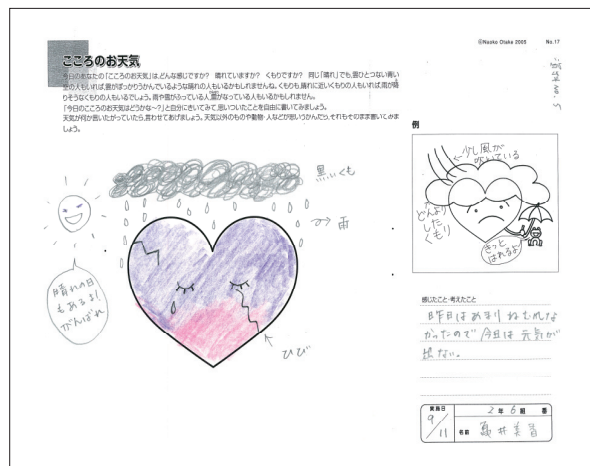 ©Naoko Otaka 2005 No.17
こころのお天気
今日のあなたの「こころのお天気」は、どんな感じですか? 晴れていますか? くもりですか? 同じ「晴れ」でも、雲ひとつない青い
空の人もいれば、雲がぽっかりうかんでいるような晴れの人もいるかもしれませんね。くもりも、晴れに近いくもりの人もいれば、雨が降
りそうなくもりの人もいるでしょう。雨や雪がふっている人、雷がなっている人もいるかもしれません。
「今日のこころのお天気はどうかな~?」と自分にきいてみて、思いついたことを自由に書いてみましょう。
天気が何か言いたがっていたら、言わせてあげましょう。天気以外のものや動物・人などが思いうかんだら、それもそのまま書いてみま
しょう。
黒いくも
雨
晴れの日
もあるよ!
がんばれ
ひび
例
少し風が
吹いている
どんより
した
くもり
きっと
はれるよ
感じたこと・考えたこと
昨日はあまりねむれな
かったので今日は元気が
出ない。
実施日
9/11
2年6組 番
名前